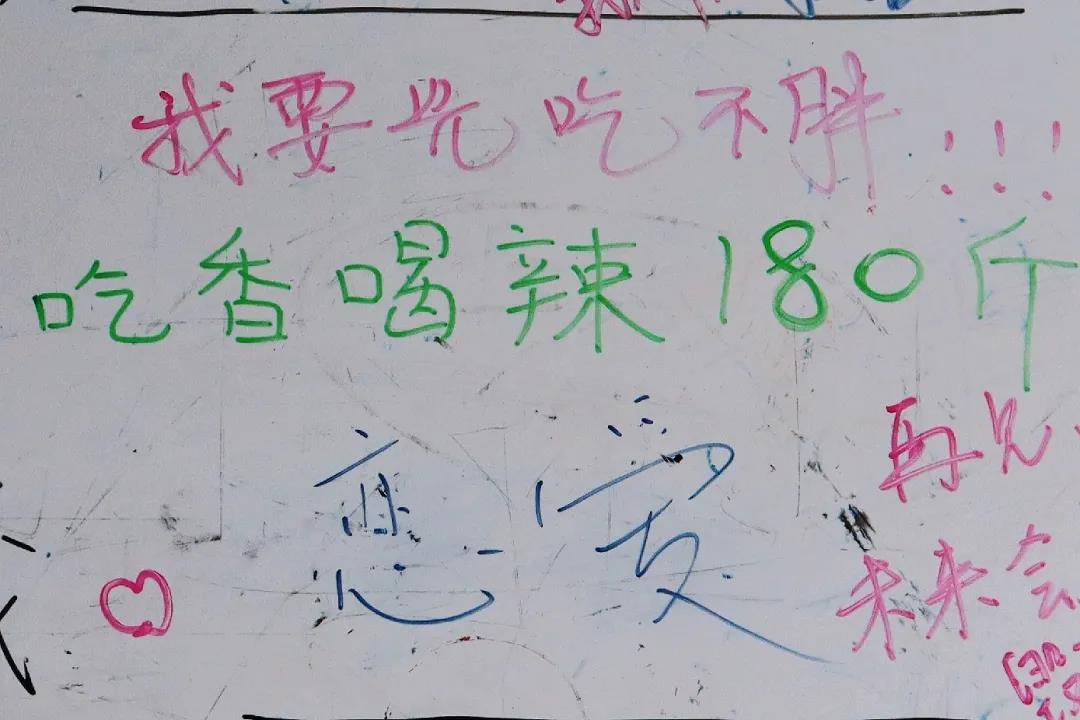 我要光吃不胖!!!
吃香喝辣180斤
恋爱
再见
未来会